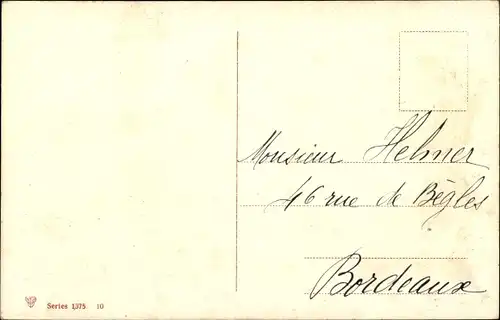 Monsieur Helmer
46 rue de Bègles
Bordeaux
Series 1375 10